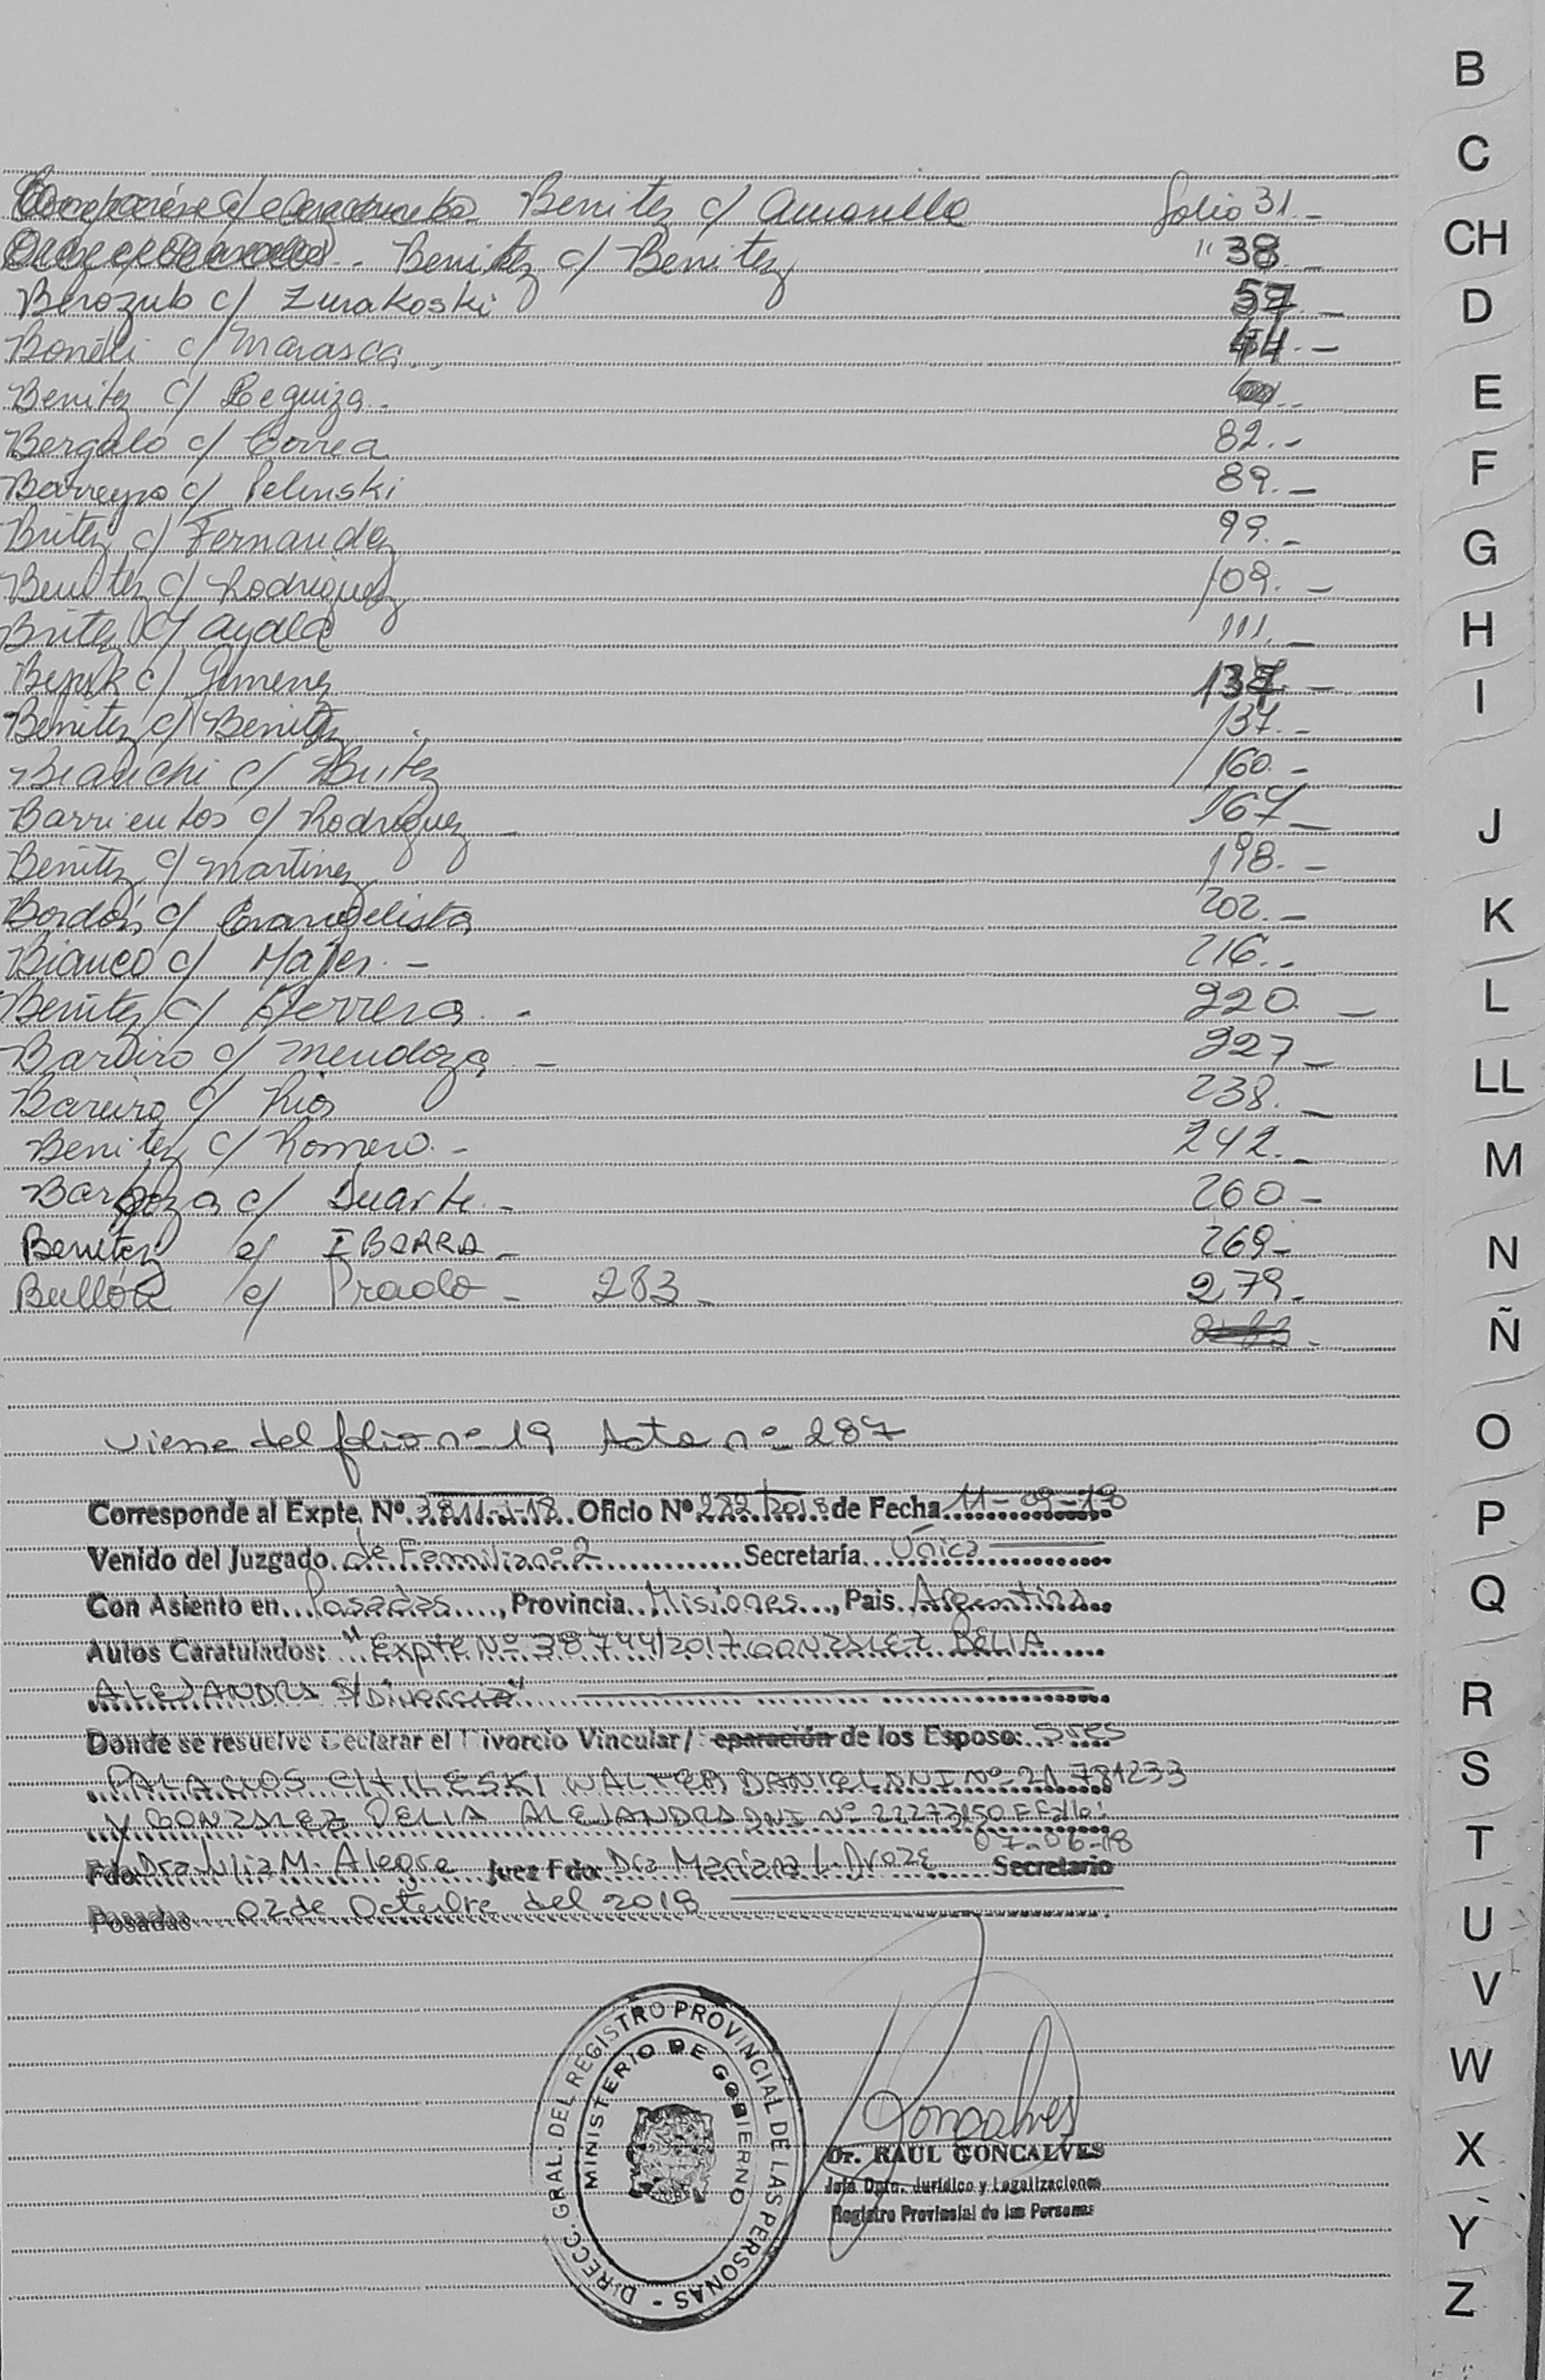 Benitez c/ Amarilla folio 31.-
Benitez c/ Benitez " 38.-
Berozub c/ Zurakoski 57.-
Boneli c/ Marasca 44.-
Benitez c/ Leguiza.-
Bergalo c/ Correa 82.-
Barreyro c/ Pelinski 89.-
Britez c/ Fernandez 99.-
Benitez c/ Rodriguez 109.-
Britez c/ Ayala 111.-
c/ Gimenez
Benitez c/ Benitez 137.-
Bianchi c/ Britez 160.-
Barrientos c/ Rodriguez - 167-
Benitez c/ Martinez 198.-
Bordón c/ Evangelista 202.-
Bianco c/ 216.-
Benitez c/ Herrera.- 220.-
c/ Mendoza.- 227-
Bareiro c/ Rios 238.-
Benitez c/ Romero.- 242.-
Barboza c/ Duarte.- 260-
Benitez c/ IBARRA- 269-
c/ Prado- 283- 279-
viene del folio nº 19 Acta nº 287
Corresponde al Expte. Nº 18. Oficio Nº 282/2018 de Fecha 11-09-18
Venido del Juzgado de Familia nº 2 Secretaría Única
Con Asiento en Posadas, Provincia Misiones, Pais Argentina
Autos Caratulados: "Expte Nº 38744/2017 GONZALEZ DELIA
ALEJANDRA S/ Divorcio"
Donde se resuelve Declarar el Divorcio Vincular/ Separación de los Esposo: Sres
PALACIOS WALTER DANIEL DNI Nº 21.781233
Y GONZALEZ DELIA ALEJANDRA DNI Nº 22273150 F Fallo:
07-06-18
Fdo. Dra Julia M. Alegre Juez Fdo. Dra Mariana L. Secretario
Posadas 02 de Octubre del 2018
DIRECC. GRAL. DEL REGISTRO PROVINCIAL DE LAS PERSONAS -
MINISTERIO DE GOBIERNO
Goncalves
Dr. RAUL GONCALVES
Jefe Dpto. Jurídico y Legalizaciones
Registro Provincial de las Personas
B
C
CH
D
E
F
G
H
I
J
K
L
LL
M
N
Ñ
O
P
Q
R
S
T
U
V
W
X
Y
Z